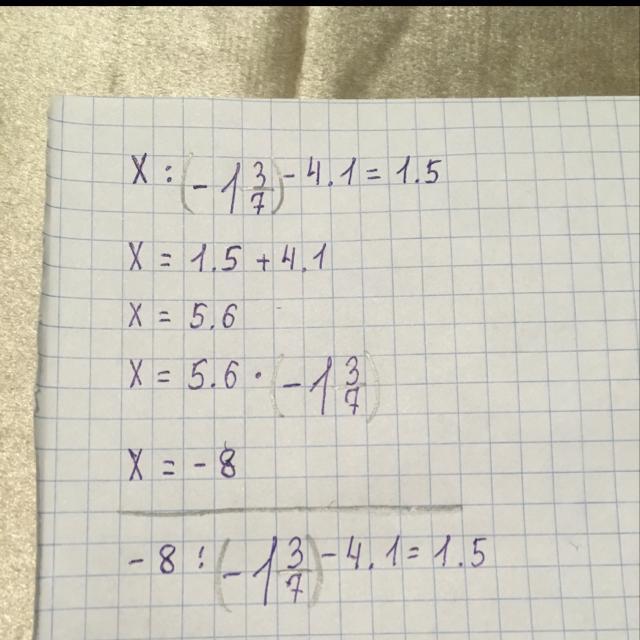 X : (-1 3/7) - 4.1 = 1.5
X = 1.5 + 4.1
X = 5.6
X = 5.6 · (-1 3/7)
X = -8
-8 : (-1 3/7) - 4.1 = 1.5